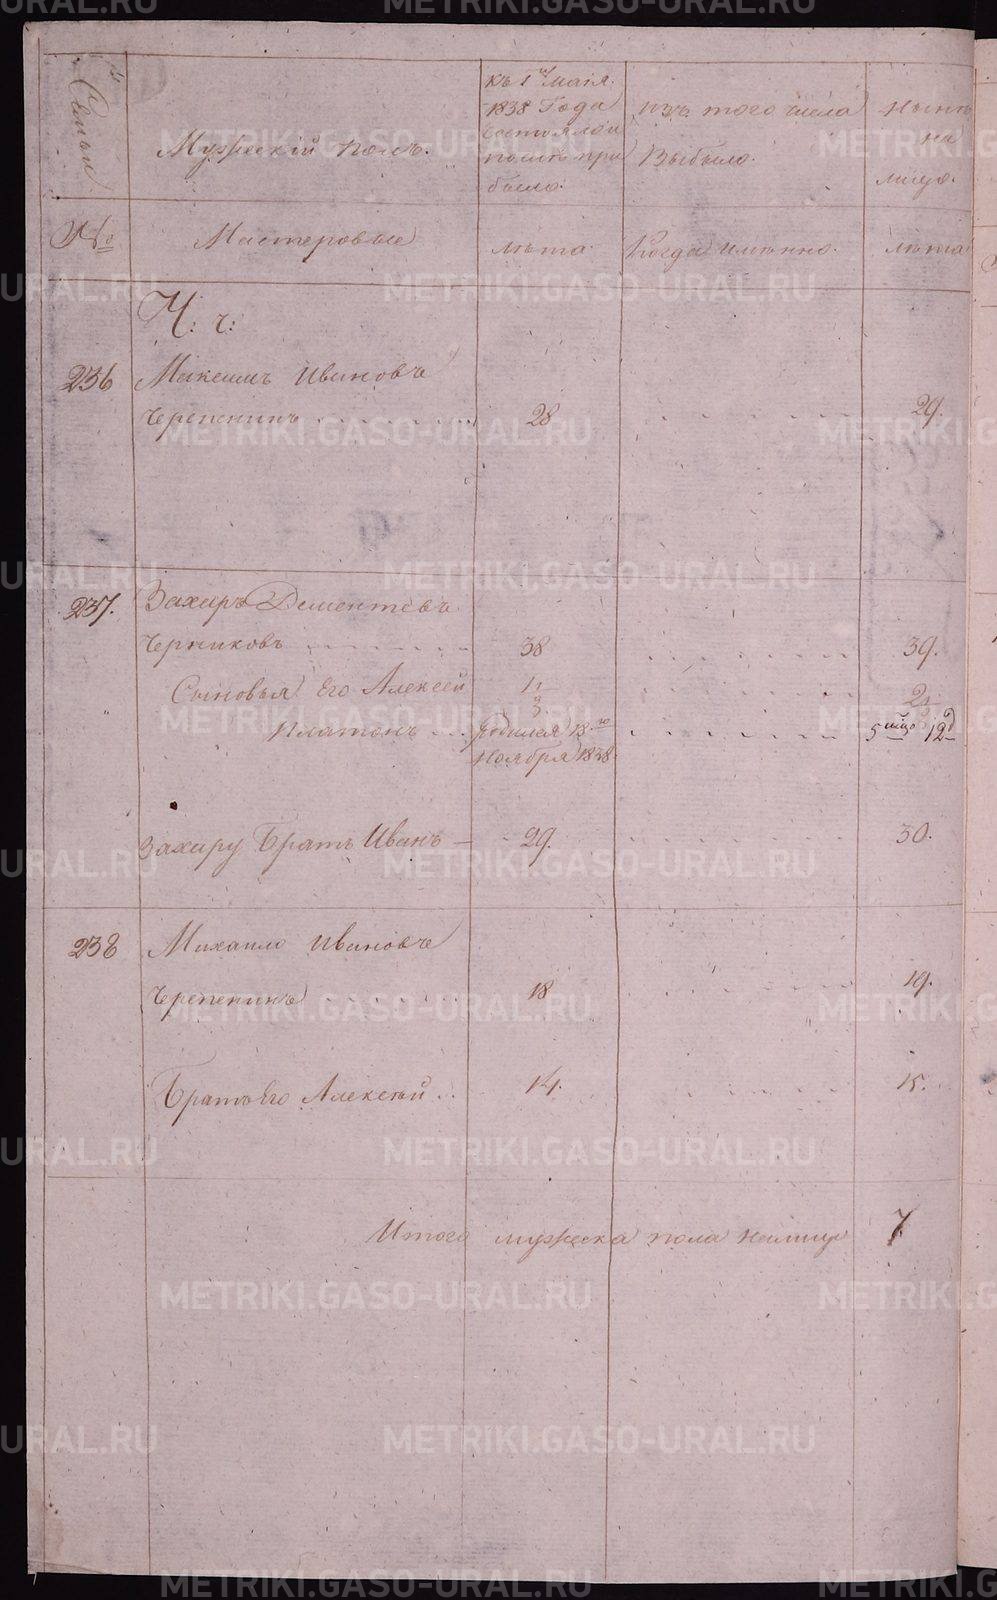 Семьи
Мужескій полъ.
къ 1му маія
1838 Года
состояло и
после при
было.
изъ того числа
Выбыло.
Нынѣ
на
лицо.
№
Мастеровые
лѣта.
Когда имянно.
лѣта
Ч: ч:
236 Максимъ Ивановъ
Черепенинъ 28 29.
237. Захаръ Дементьевъ
Черниковъ 38 39.
Сыновья Его Алексей 1 2
Платонъ родился 18.го 5 мцо 12д
Ноября 1838.
Захару Братъ Иванъ — 29. 30.
238 Михаило Ивановъ
Черепенинъ 18 19.
Братъ Его Алексей 14. 15.
Итого мужеска пола налицо 7
METRIKI.GASO-URAL.RU